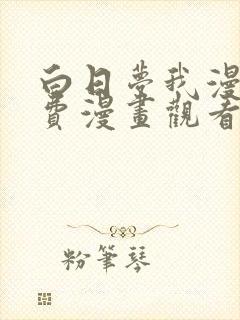 白日夢我漫
費漫畫觀看
粉筆琴